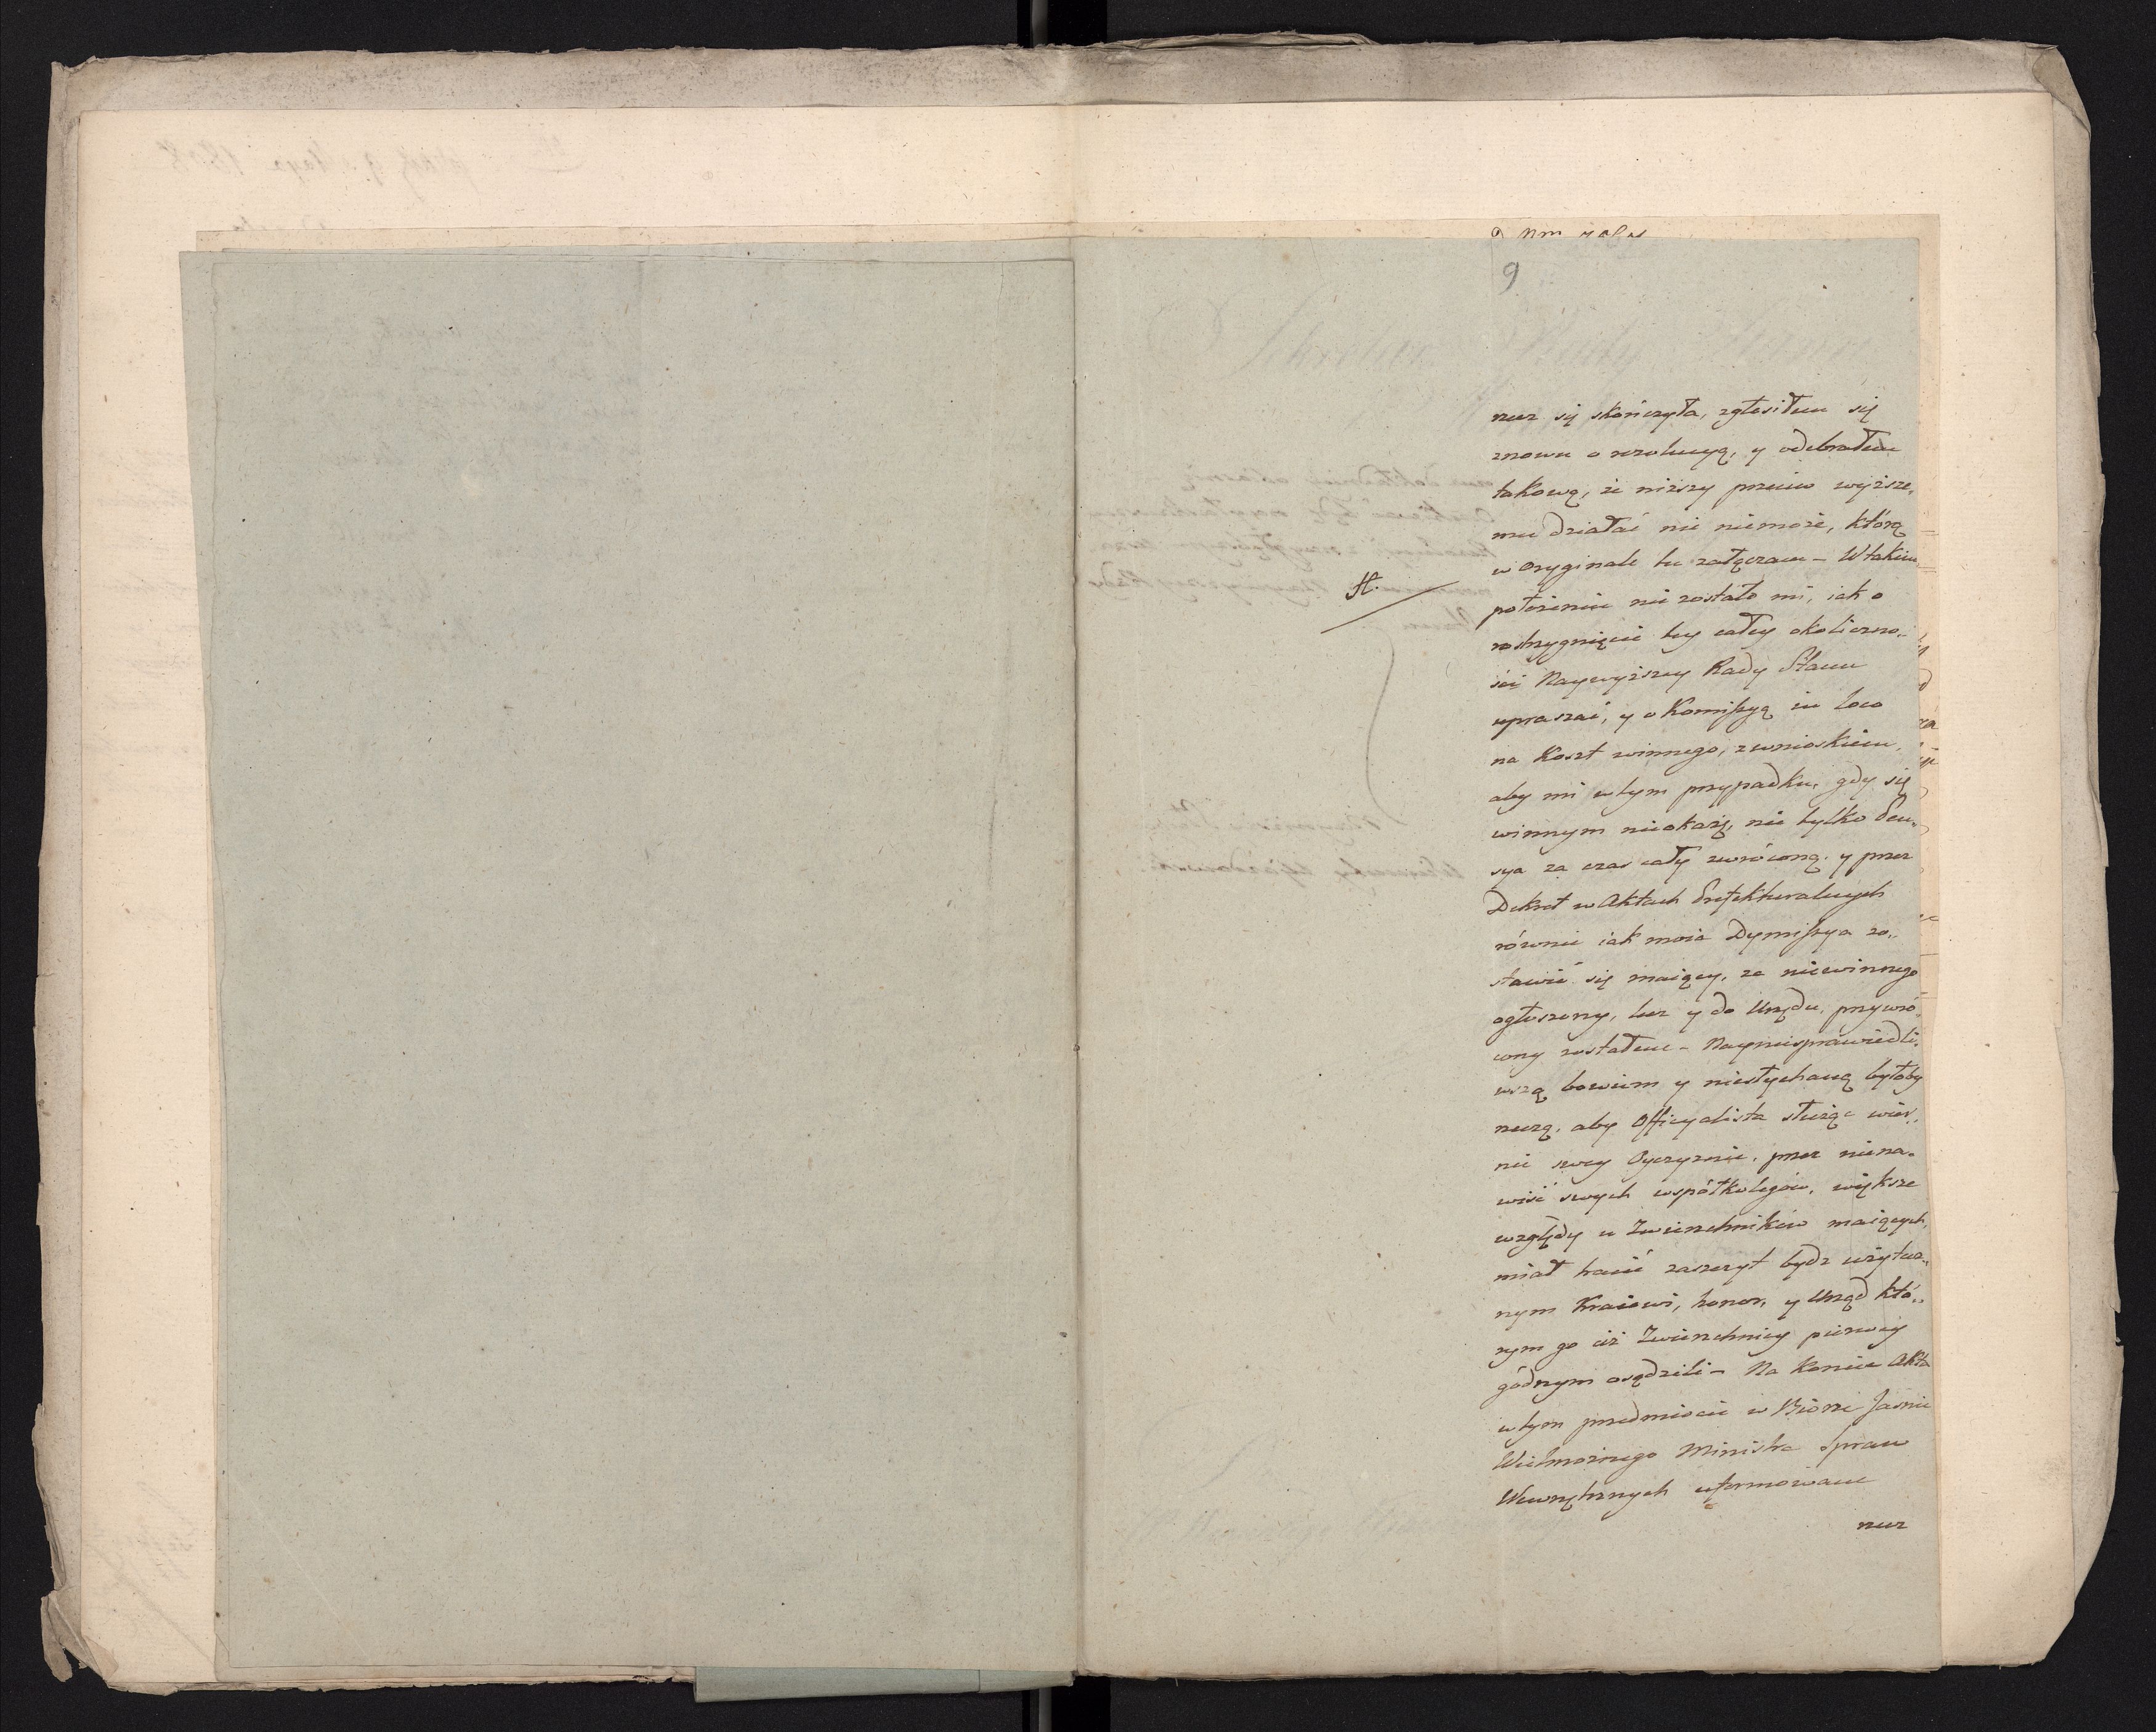 9
recz się skończyła, zgłosiłem się
znowu o rezolucyą, y odebrałem
takową, że niższy przeciw wyższe„
mu działać nie niemoże, którą
w oryginale tu załączam – W takim
H.
położeniu nie zostało mi, iak o
rostrzygnięcie tey całey okoliczno„
ści Naywyższey Rady Stanu
upraszać, y o Kommissyą in loco
na koszt winnego, z wnioskiem,
aby mi w tym przypadku, gdy się
winnym nieokażę, nie tylko Pen„
sya za czas cały zwróconą, y przez
Dekret w Aktach Prefekturalnych
równie iak moia Dymissya zo„
stawić się maiący, za niewinnego
ogłoszony, lecz y do Urzędu, przywró„
cony zostałem – Nayniesprawiedli„
wszą bowiem y niesłychaną byłoby
rzeczą, aby Officyalista służąc wier„
nie swey Oyczyznie, przez niena„
wiść swych współkolegów, większe
względy u Zwierzchników maiących,
miał tracić zaszczyt bydź użytecz„
nym Kraiowi, honor, y Urząd któ„
rym go ciż Zwierzchnicy pierwey
godnym osądzili – Na koniec Akta
w tym przedmiocie w Biórze Jaśnie
Wielmożnego Ministra Spraw
Wewnętrznych uformowane
recz